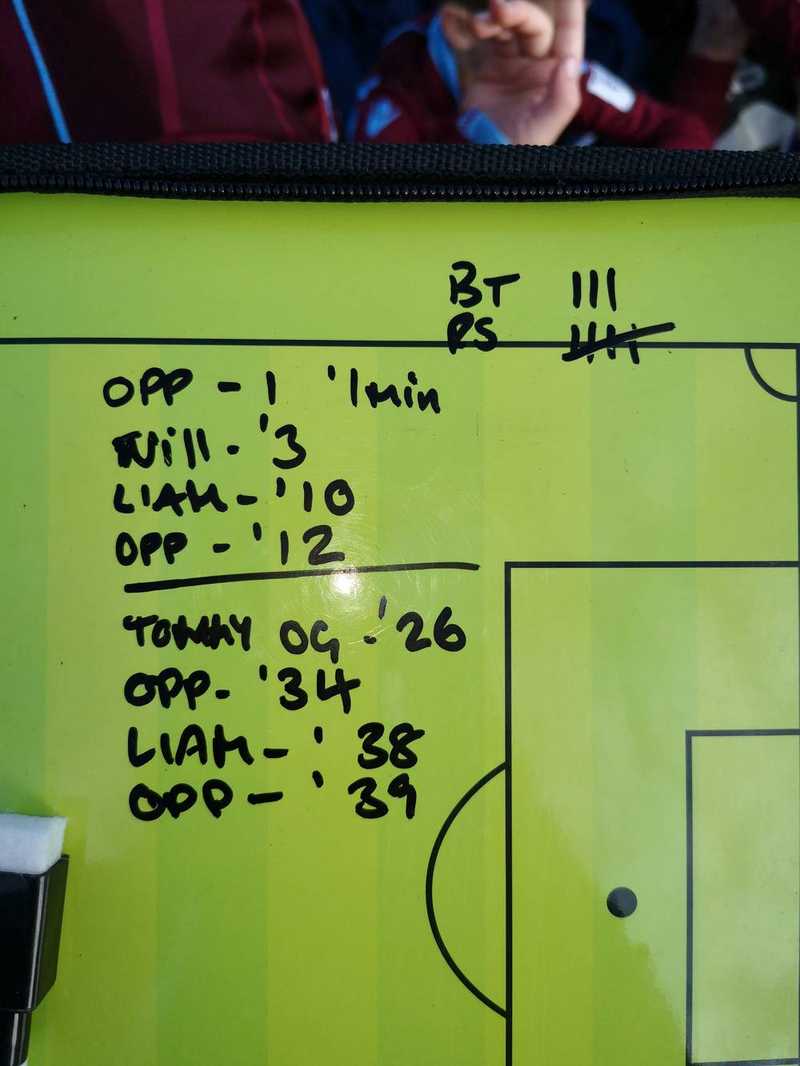 BT III
RS IIII
OPP - 1 '1min
Will - '3
LIAM - '10
OPP - '12
TOMMY OG - '26
OPP - '34
LIAM - '38
OPP - '39